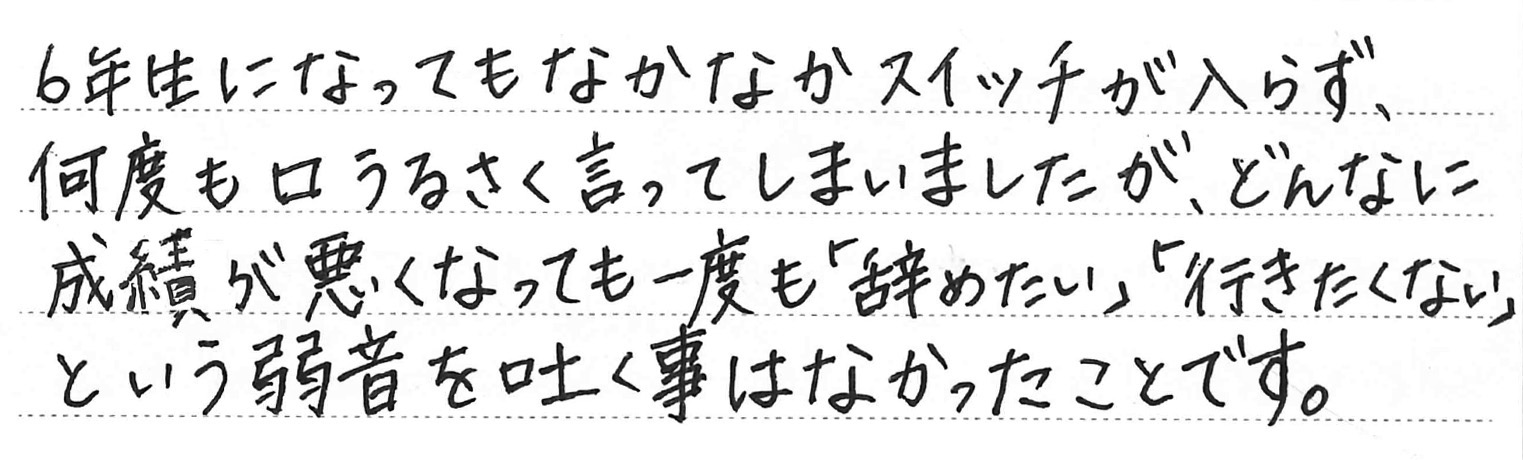 6年生になってもなかなかスイッチが入らず、
何度も口うるさく言ってしまいましたが、どんなに
成績が悪くなっても一度も「辞めたい」「行きたくない」
という弱音を吐く事はなかったことです。